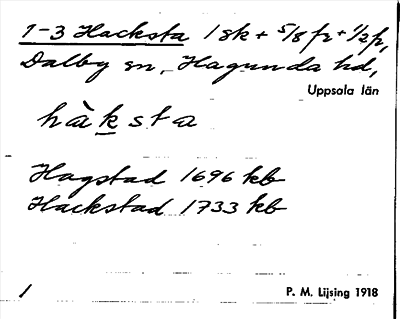 1-3 Hacksta 1 sk + 5/8 fr + 1/2 fr,
Dalby sn, Hagunda hd,
Uppsala län
hàksta
Hagstad 1696 kb
Hackstad 1733 kb
1
P. M. Lijsing 1918